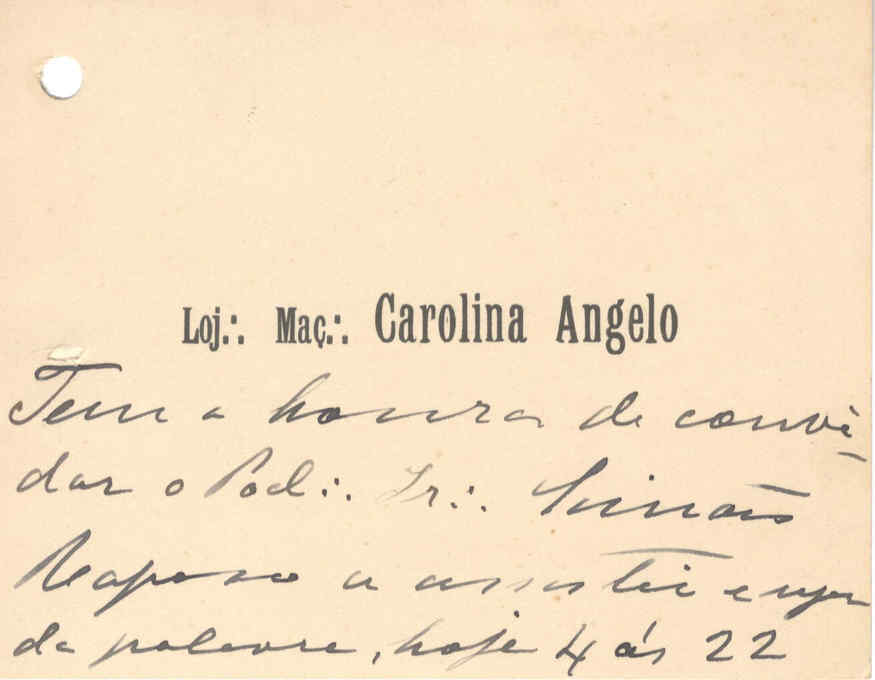 Loj∴ Maç∴ Carolina Angelo
Tem a honra de convi-
dar o Pod∴ Ir∴ Simões
Raposo a assistir e usar
da palavra, hoje 4 ás 22